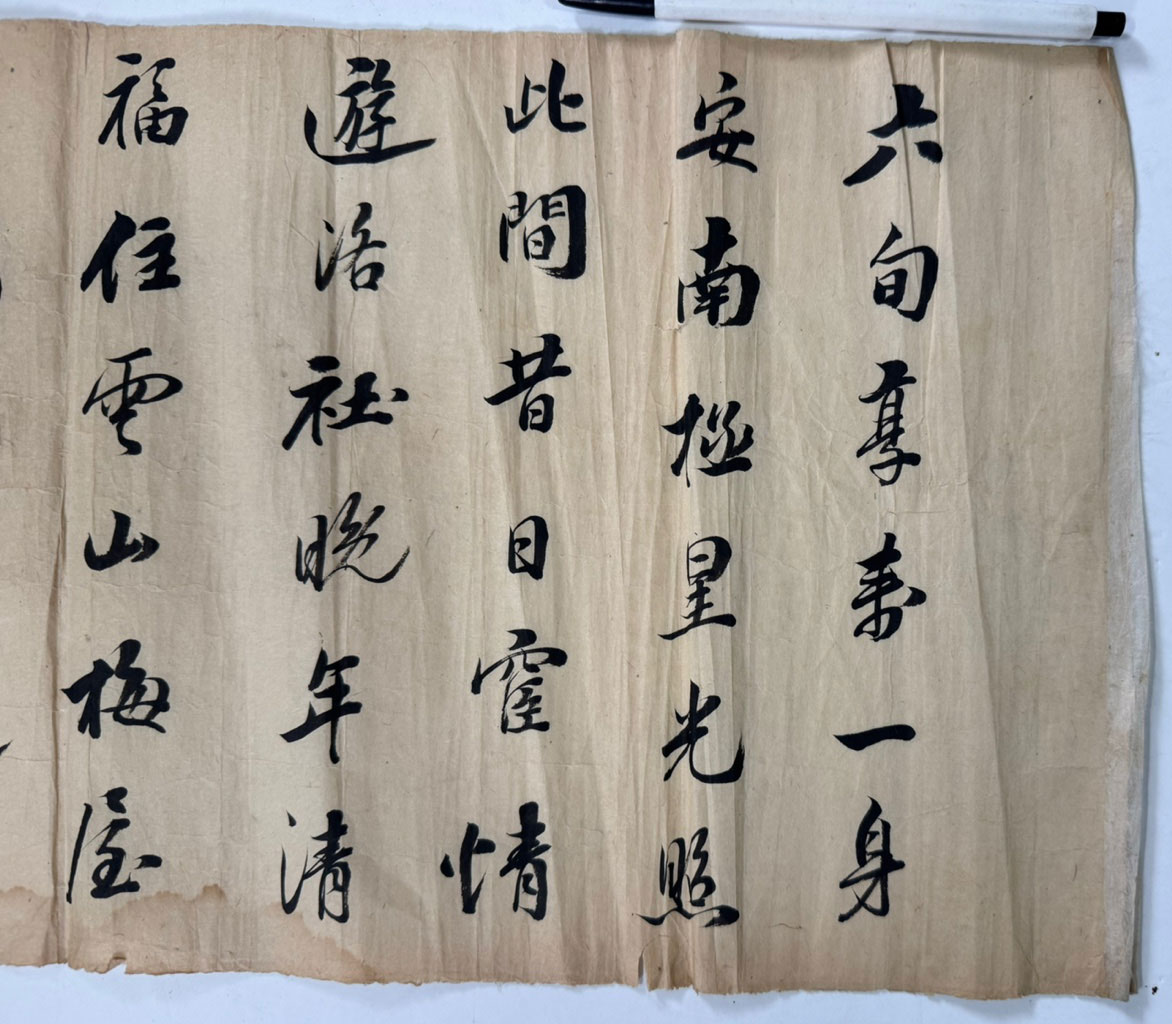 六旬享壽一身
安南極星光照
此間昔日霍情
遊洛社晚年清
福住雲山梅屋